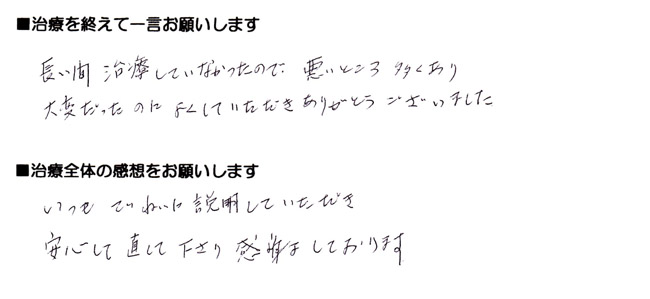 ■治療を終えて一言お願いします
長い間 治療していなかったので 悪いところ 多くあり
大変だったのに よくしていただきありがとうございました
■治療全体の感想をお願いします
いつも ていねいに説明していただき
安心して 直して下さり 感謝しております